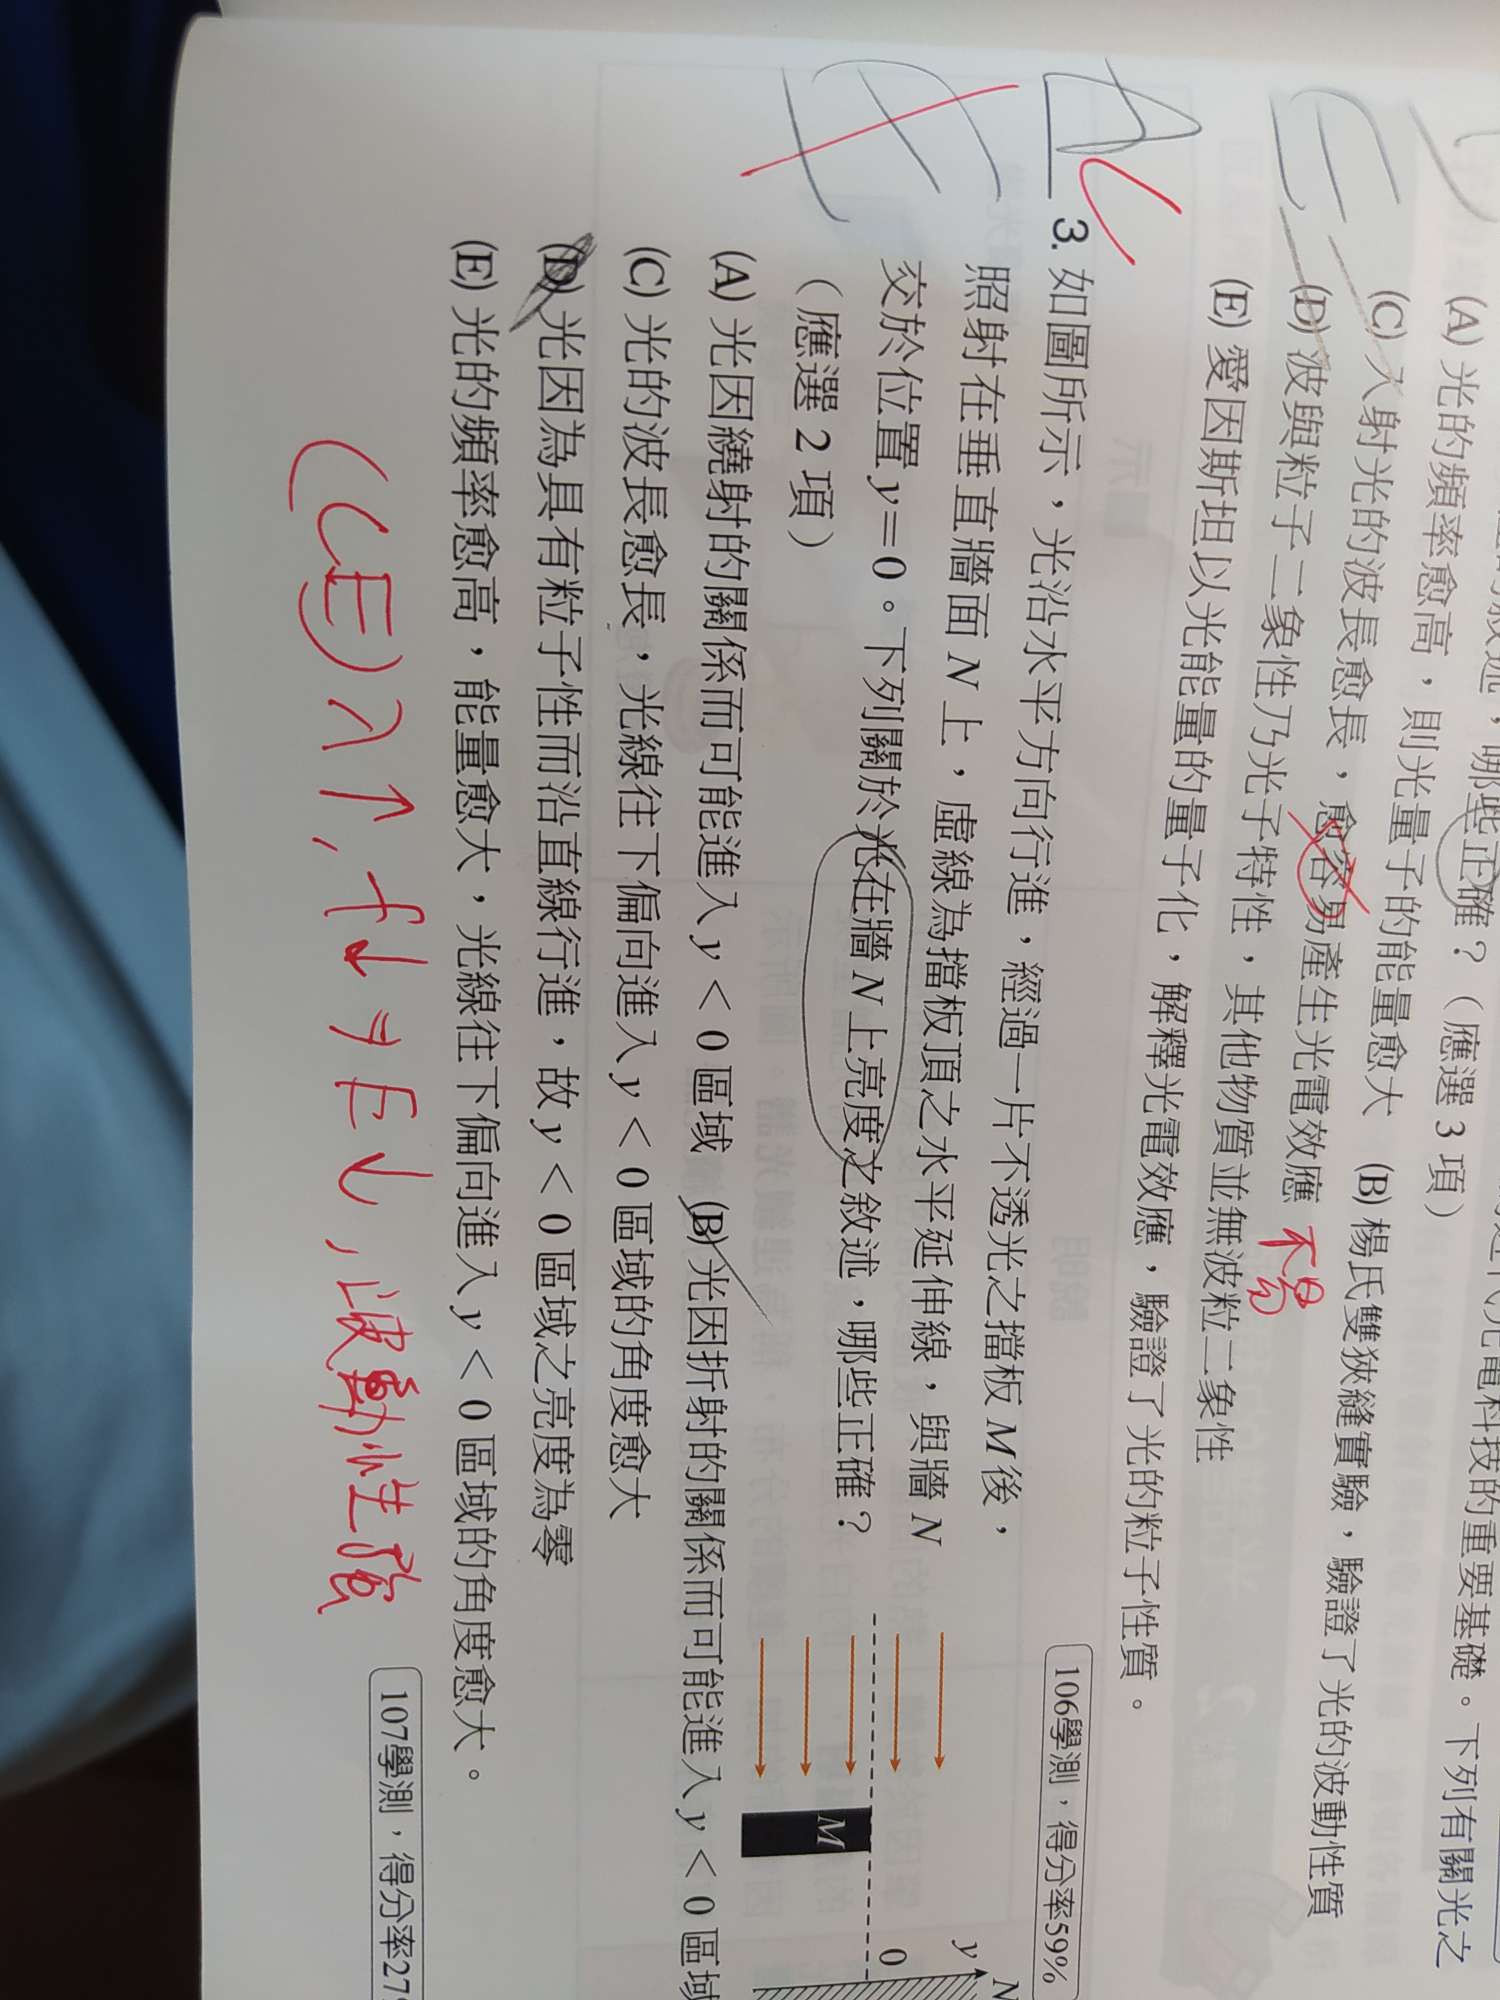 (A) 光的頻率愈高，則光量子的能量愈大 (B) 楊氏雙狹縫實驗，驗證了光的波動性質
(C) 入射光的波長愈長，愈容易產生光電效應 不易
(D) 波與粒子二象性乃光子特性，其他物質並無波粒二象性
(E) 愛因斯坦以光能量的量子化，解釋光電效應，驗證了光的粒子性質。
106學測，得分率59%
3. 如圖所示，光沿水平方向行進，經過一片不透光之擋板 M 後，
照射在垂直牆面 N 上，虛線為擋板頂之水平延伸線，與牆 N
交於位置 y＝0。下列關於光在牆 N 上亮度之敘述，哪些正確？
（應選 2 項）
(A) 光因繞射的關係而可能進入 y＜0 區域 (B) 光因折射的關係而可能進入 y＜0 區域
(C) 光的波長愈長，光線往下偏向進入 y＜0 區域的角度愈大
(D) 光因為具有粒子性而沿直線行進，故 y＜0 區域之亮度為零
(E) 光的頻率愈高，能量愈大，光線往下偏向進入 y＜0 區域的角度愈大。
y
N
0
M
(CE) λ↑, f↓ → E↓, 波動性強
107學測，得分率27